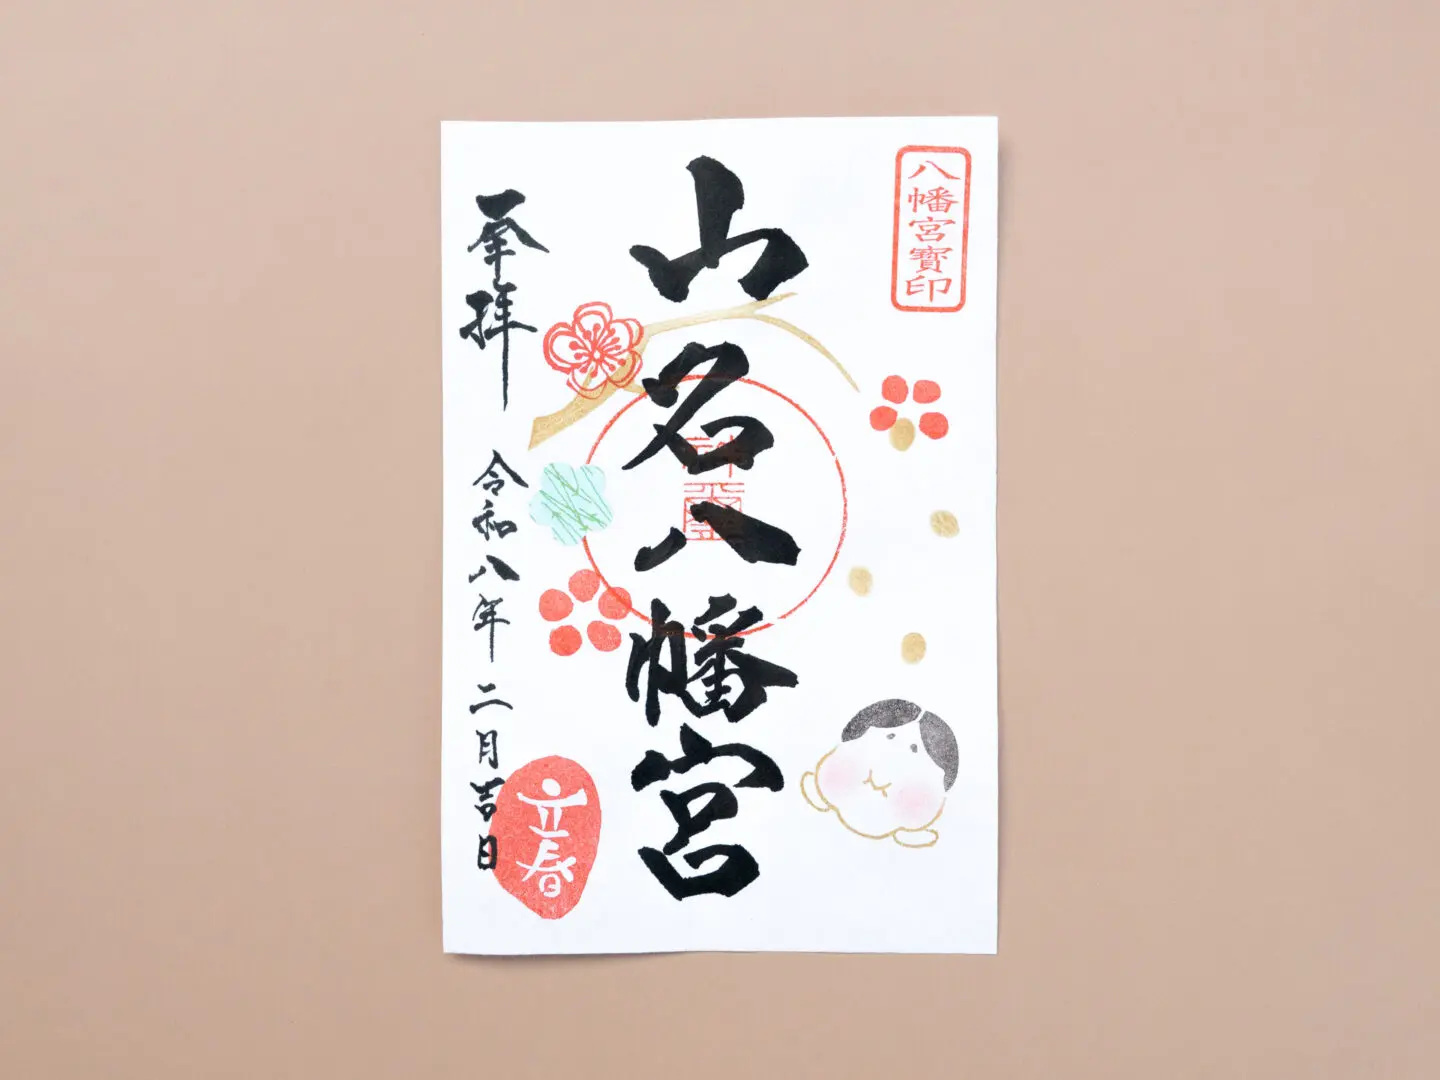 八幡宮寳印
山名八幡宮
奉拝
令和八年二月吉日
立春